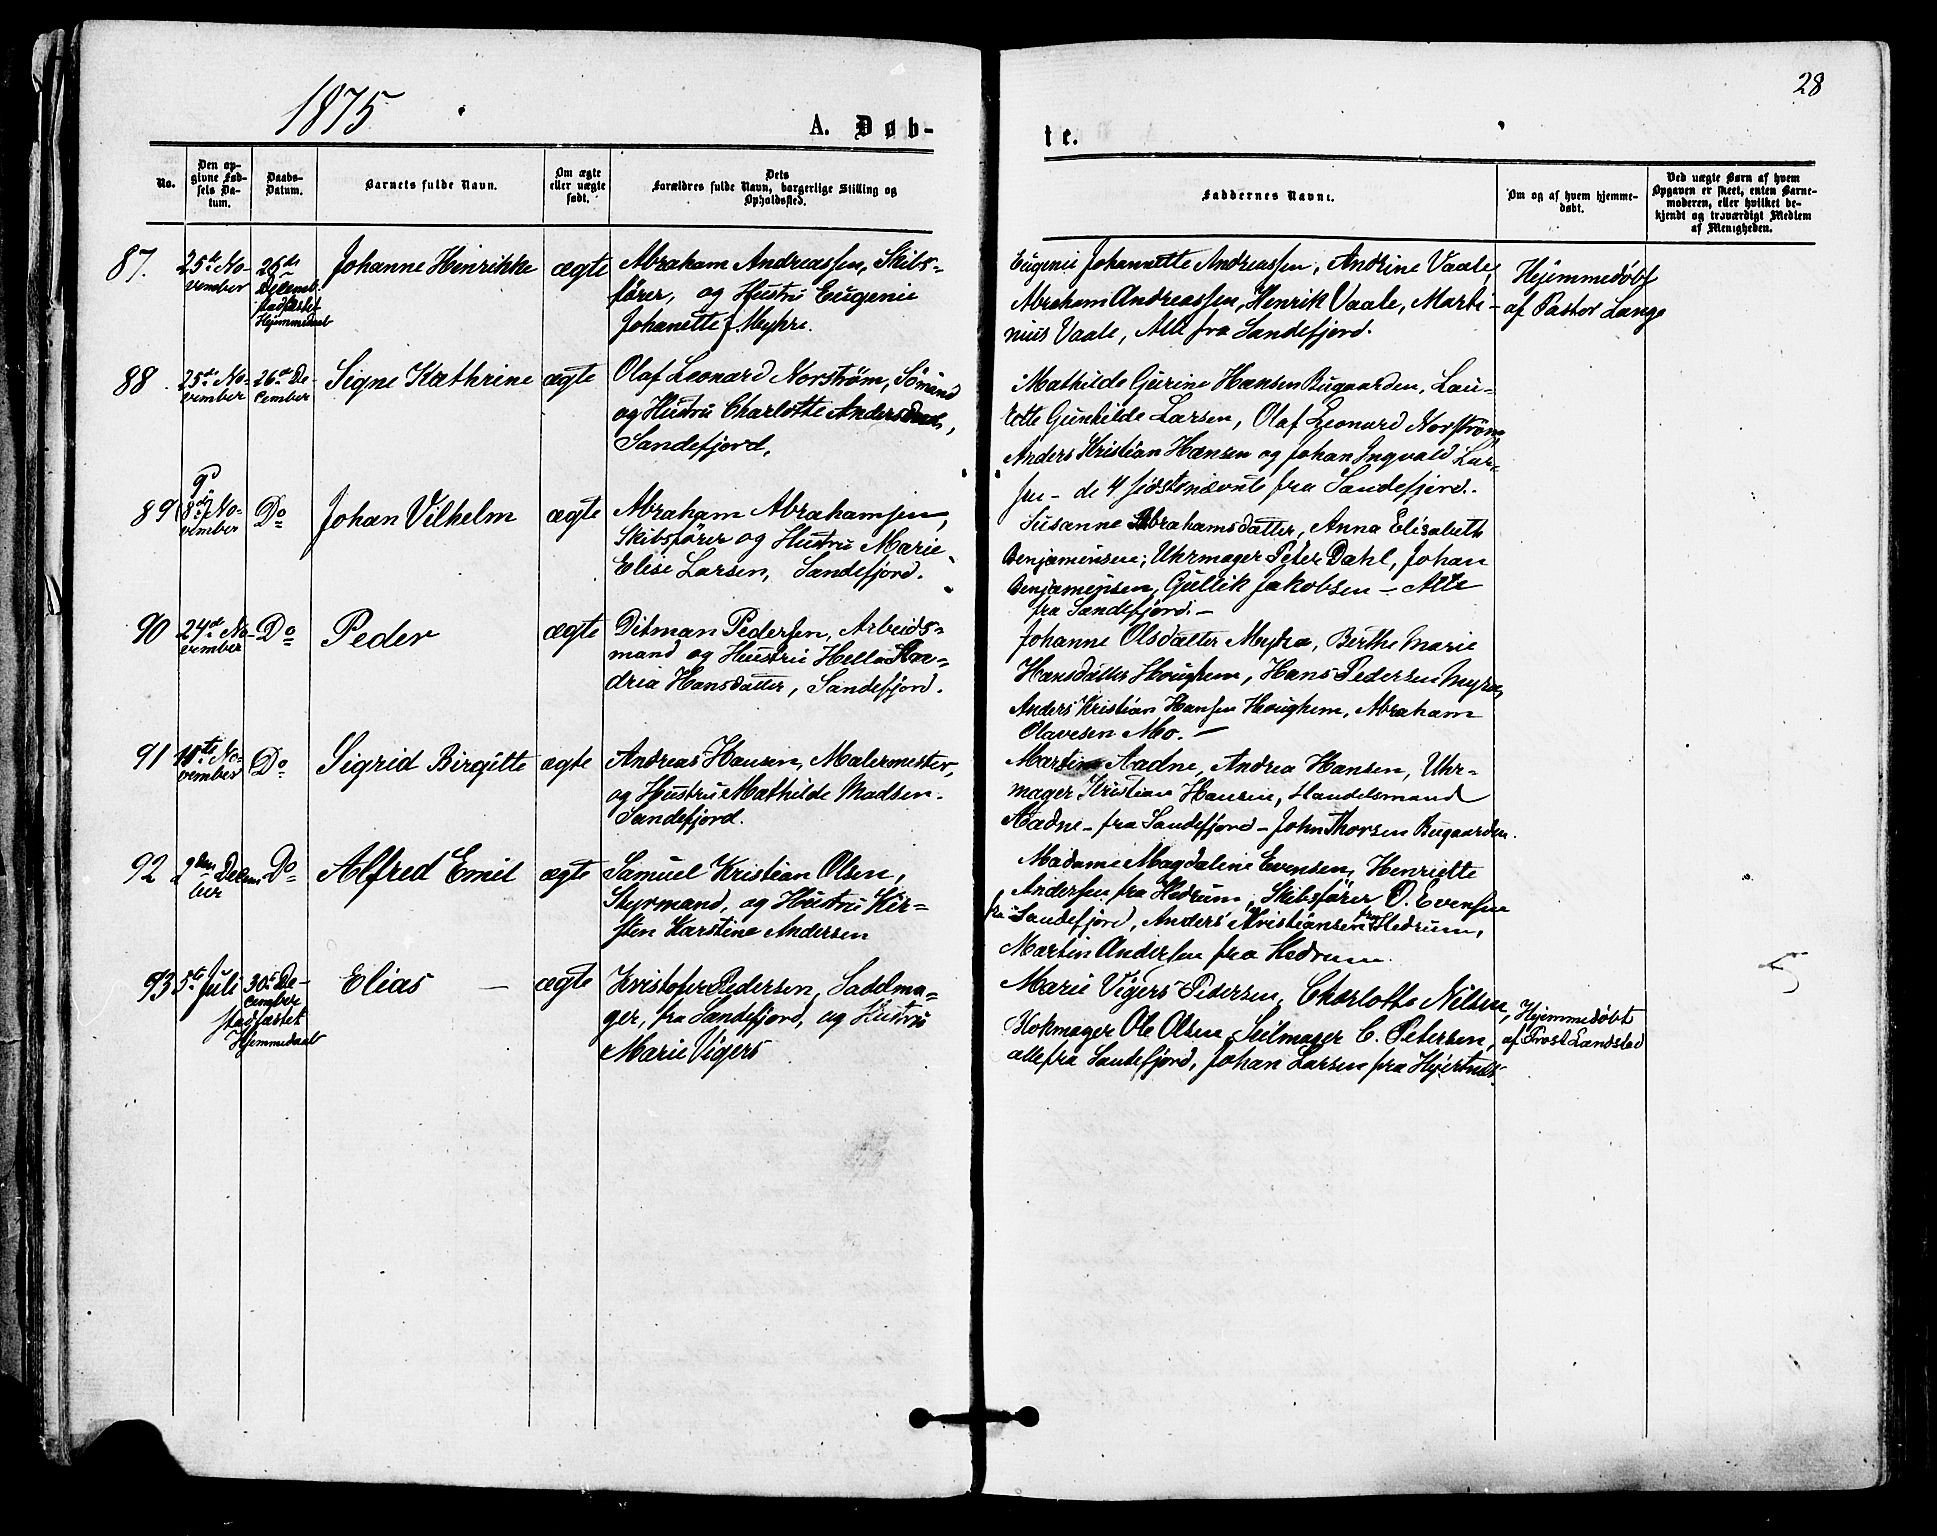 1875
28
A. Døb-
te.
No.
Den op-
givne Fød-
sels Da-
tum.
Daabs-
Datum.
Barnets fulde Navn.
Om ægte
eller uægte
født.
Dets
Forældres fulde Navn, borgerlige Stilling og
Opholdssted.
Faddernes Navne.
Om og af hvem hjemme-
døbt.
Ved uægte Børn af hvem
Opgaven er skeet, enten Barne-
moderen, eller hvilket be-
kjendt og troværdigt Medlem
af Menigheden.
87.
25de No-
vember
26de
Decemb.
stadfæstet
Hjemmedaab
Johanne Henrikke
ægte
Abraham Andreassen, Skibs-
fører, og Hustru Eugenie
Johanette Myhre.
Eugenie Johannette Andreassen, Andrine Vaale,
Abraham Andreassen, Henrik Vaale, Marti-
nius Vaale, Alle fra Sandefjord.
Hjemmedøbt
af Pastor Lange
88.
25de No-
vember
26de De-
cember
Signe Kathrine
ægte
Olaf Leonard Norstrøm, Sömand
og Hustru Charlotte Andersdat,
Sandefjord,
Mathilde Gurine Hansen Bugaarden, Lau-
ritte Gunhilde Larsen, Olaf Leonard Norstrøm
Anders Kristian Hansen og Johan Ingvald Lar-
sen - de 4 sidstnævnte fra Sandefjord.
89
8de No-
vember
Do
Johan Vilhelm
ægte
Abraham Abrahamsen,
Skibsfører og Hustru Marie
Elise Larsen, Sandefjord.
Susanne Abrahamsdatter, Anna Elisabeth
Benjaminsen; Uhrmager Peter Dahl, Johan
Benjaminsen, Gullik Jakobsen - Alle
fra Sandefjord. -
90
24de No-
vember
Do
Peder
ægte
Ditman Pedersen, Arbeids-
mand og Hustru Hella An-
dria Hansdatter, Sandefjord.
Johanne Olsdatter Myhra, Berthe Marie
Hansdatter Houghem, Hans Pedersen Myra,
Anders Kristian Hansen Houghem, Abraham
Olavesen Mo. -
91
18de No-
vember
Do
Sigrid Birgitte
ægte
Andreas Hansen, Malermester,
og Hustru Mathilde Madsen.
Sandefjord.
Martine Aadne, Andrea Hansen, Uhr-
mager Kristian Hansen, Handelsmand
Aadne - fra Sandefjord - John Thorsen Bugaarden.
92
2den Decem-
ber
Do
Alfred Emil
ægte
Samuel Kristian Olsen,
Styrmand, og Hustru Kir-
sten Karstine Andersen
Madame Magdaline Evensen, Henriette
Andersen fra Hedrum, Skibsfører O. Evensen
fra Sandefjord, Anders Kristiansen fra Hedrum,
Martin Andersen fra Hedrum.
93
5te Juli
30te De-
cember
stadfæstet
Hjemmedaab
Elias -
ægte
Kristofer Pedersen, Sadelma-
ger, fra Sandefjord, og Hustru
Marie Vigers
Marie Vigers Pedersen, Charlotte Nilsen,
Blokmager Ole Olsen, Seilmager C. Petersen,
alle fra Sandefjord, Johan Larsen fra Hjertnæs.
Hjemmedøbt
af Provst Landstad